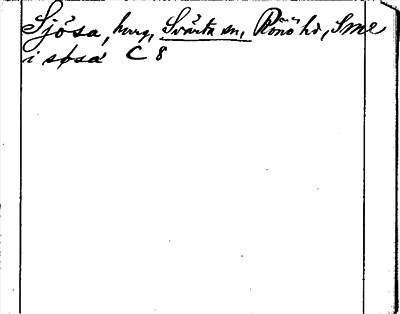 Sjösa, hrg, Svärta sn, Rönö hd, Sml
i søsa C 8